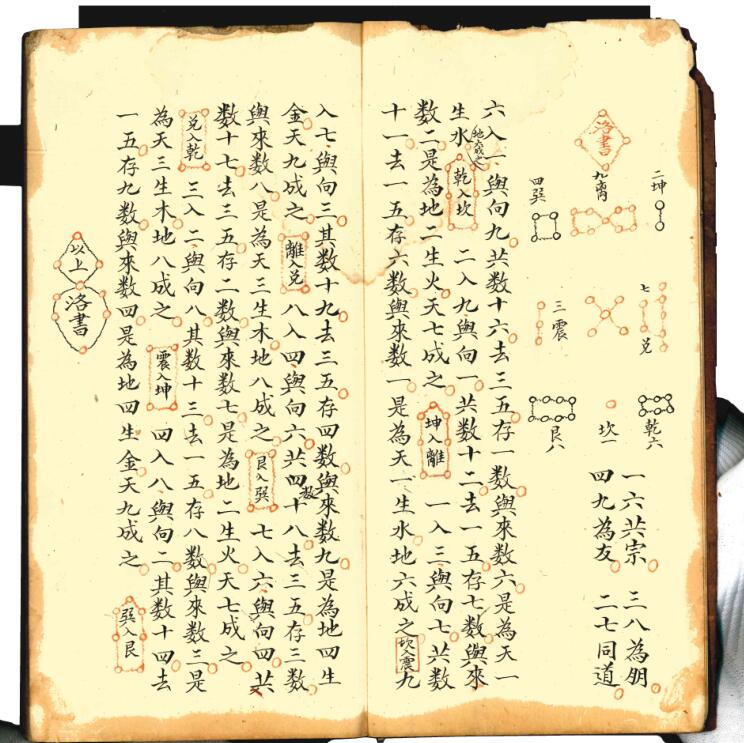 洛書
二坤
九离
四巽
七兌
三震
乾六
坎一
艮八
一六共宗 三八為朋
四九為友 二七同道
六入一與向九共数十六去三五存一数與來数六是為天一
生水地六成之 乾入坎 二入九與向一共数十二去一五存七数與來
数二是為地二生火天七成之 坤入離 一入三與向七共数
十一去一五存六数與來数一是為天一生水地六成之 坎入震 九
入七與向三其数十九去三五存四数與來数九是為地四生
金天九成之 離入兌 八入四與向六共四数十八去三五存三数
與來数八是為天三生木地八成之 艮入巽 七入六與向四共
数十七去三五存二数與來数七是為地二生火天七成之
兌入乾 三入二與向八其数十三去一五存八数與來数三是
為天三生木地八成之 震入坤 四入八與向二其数十四去
一五存九数與來数四是為地四生金天九成之 巽入艮
以上
洛書